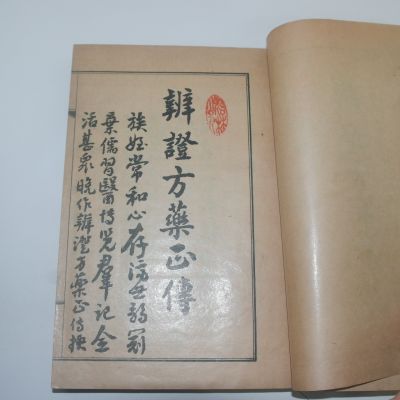 辨證方藥正傳
族姪常和心存濟世弱冠
棄儒習醫博覽羣記全
活甚衆晩作辨證方藥正傳